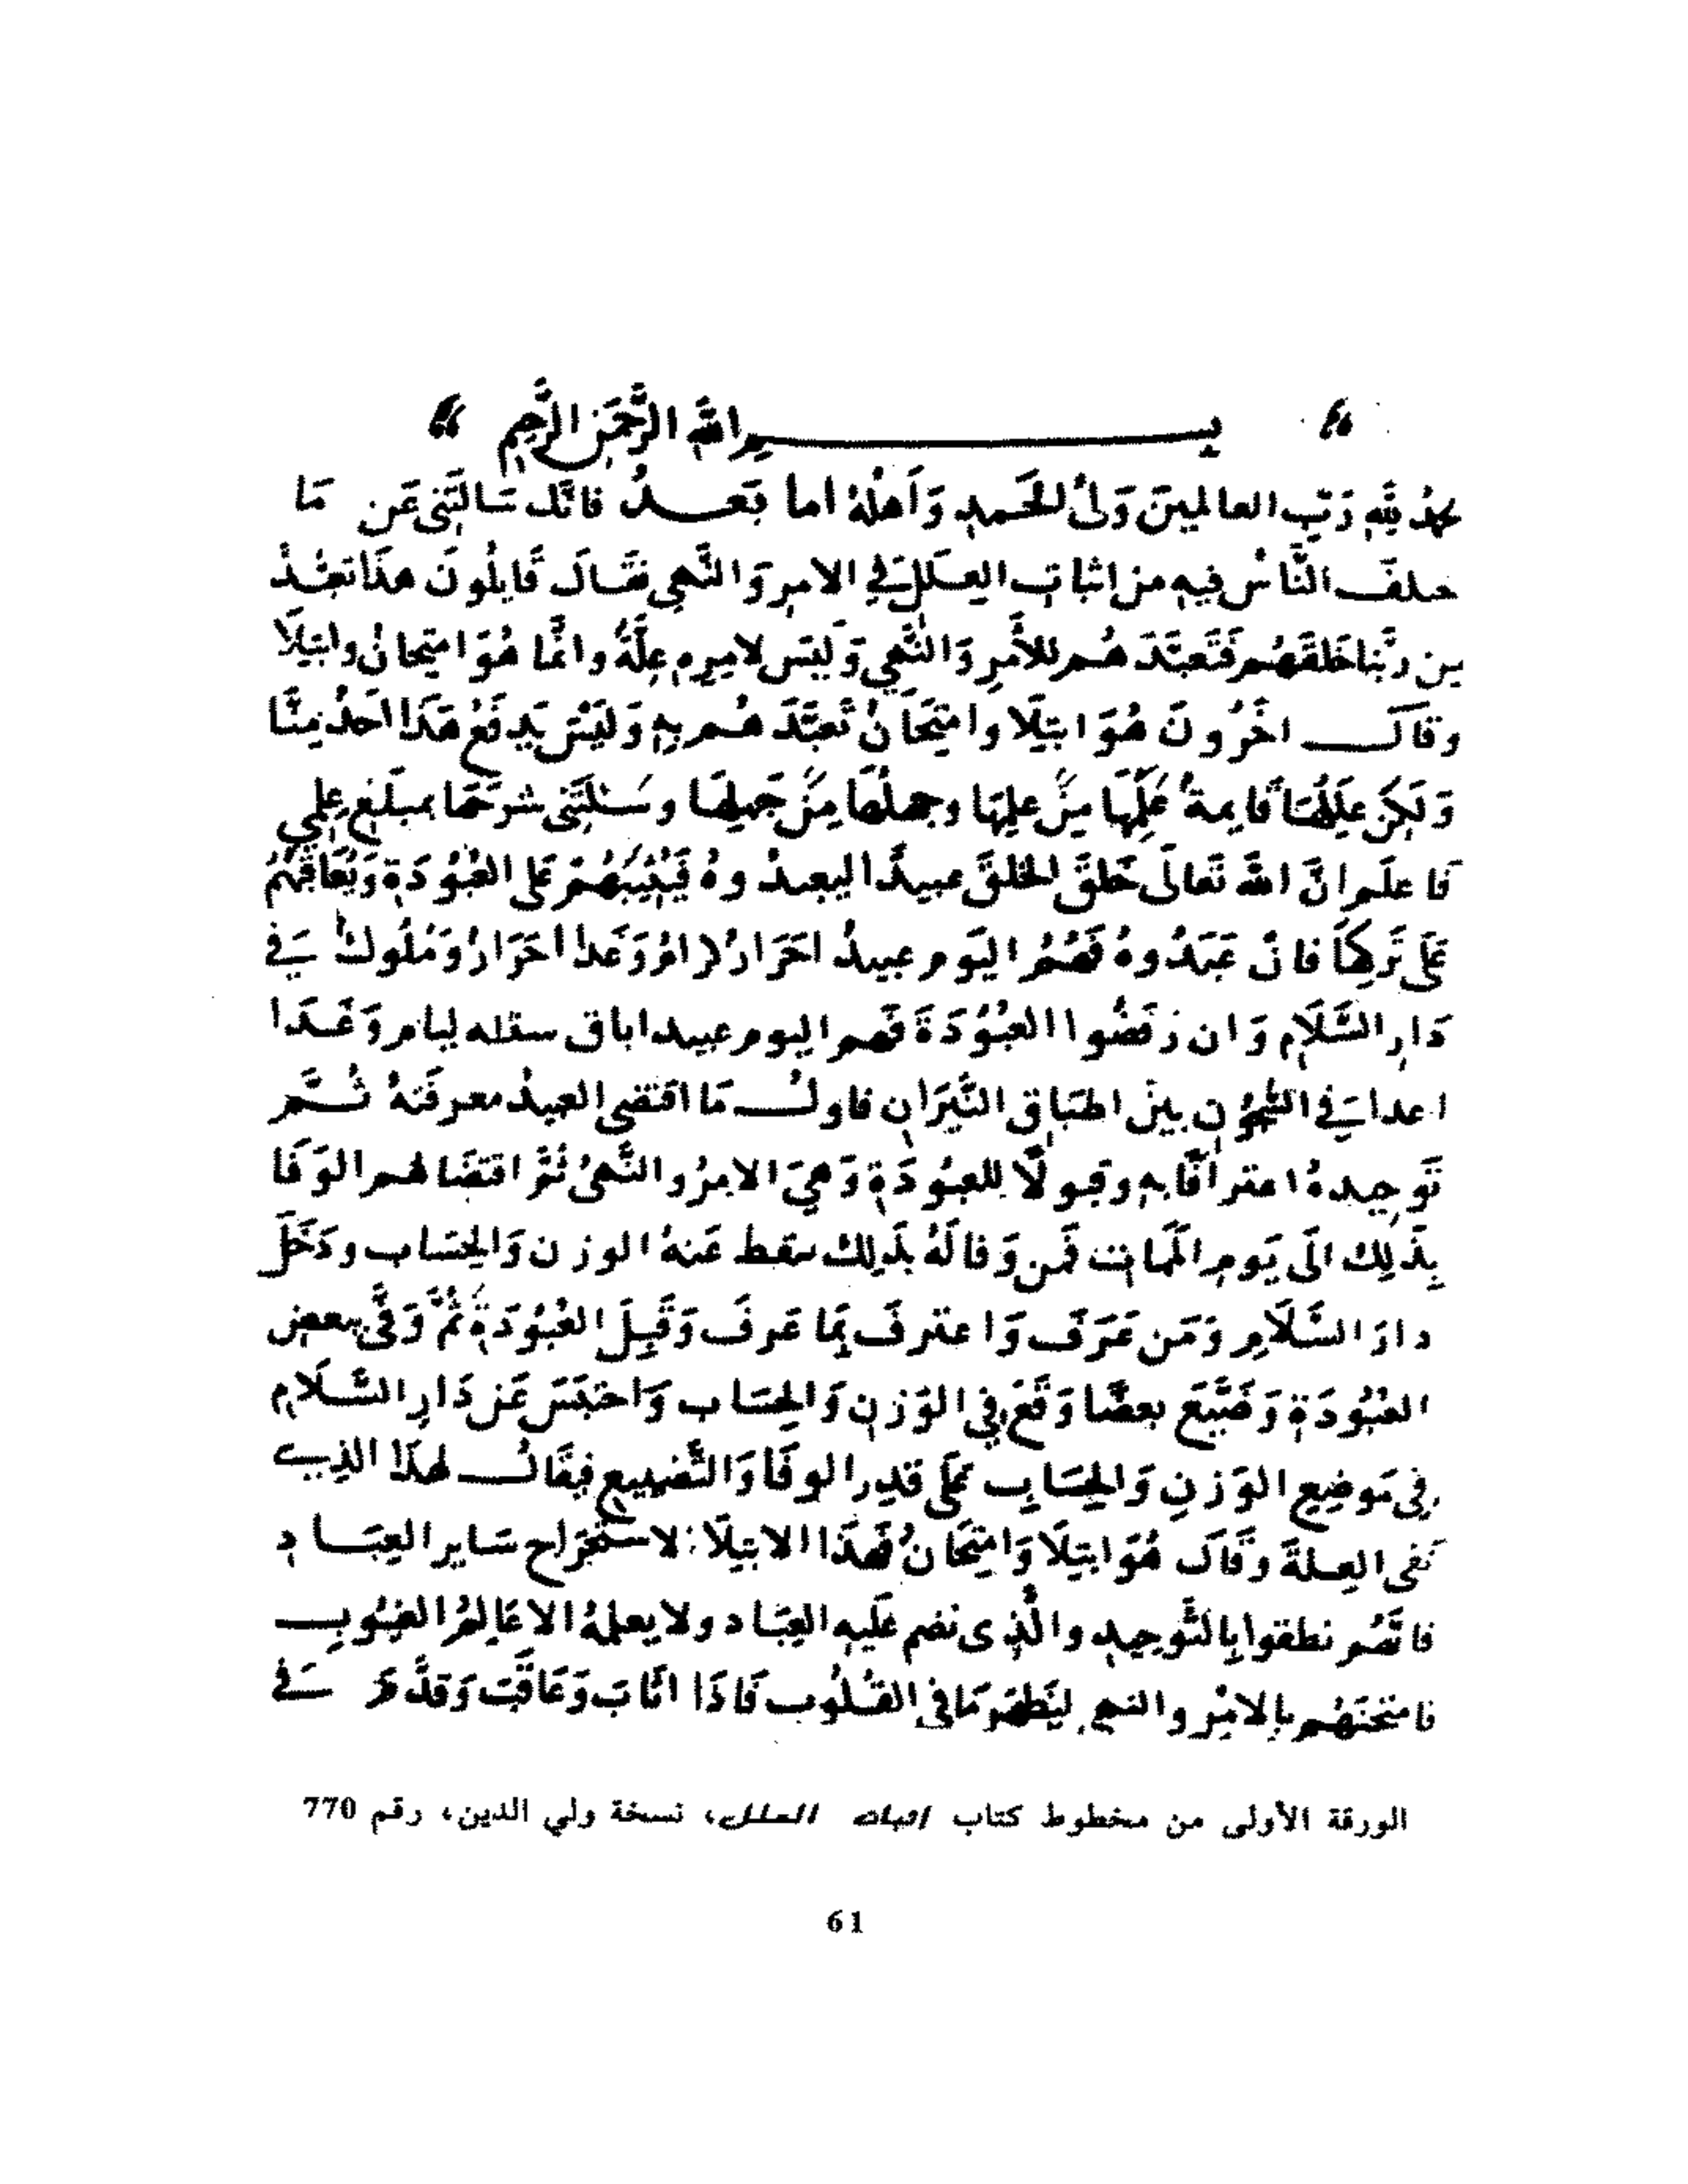 بسم الله الرحمن الرحيم
لله رَبِّ العالمينَ وَلىُّ الحَمدِ وَاَهلُهُ اما بَعدُ فانَّك سَالتَنى عَن مَا
النَّاسُ فيهِ من اثباتِ العِلَلِ في الامرِ وَالنَّهى فقَالَ قَايلُونَ هَذا تعبُّدٌ
رَبِّنا خَلَقَهُم فَتَعبَّدَ هُم للأمرِ وَالنَّهي وَليسَ لامرِهِ عِلَّةٌ وانَّما هُوَ امتِحانٌ وابتِلَا
وقالَ اخَرُونَ هُوَ ابتِلَا وامتِحَانٌ تَعَبَّدَ هُم بِهِ وَلَيسَ يَدفَعُ هَذا احَدٌ مِنَّا
وَلَكِن عِلَلُهَا قايمةٌ عَلِمَهَا مَن عَلِمَهَا وجهلهَا مَن جَهِلهَا وسَئلتَنى شرحَهَا بمبلَغِ عِلمِي
فاعلَم انَّ اللهَ تَعالَى خَلَقَ الخلقَ عبيدًا ليعبدُوهُ فَيُثِيبَهُم عَلى العُبُودَةِ وَيُعَاقِبَهُم
عَلى تَركِهَا فان عَبَدُوهُ فَهُمُ اليَوم عبيدٌ احَرَارٌ كرامٌ وَغَدا أحرَارٌ وَمُلُوكٌ في
دَارِ السَّلَامِ وَان رَفَضُوا العُبُودَةَ فَهم اليوم عبيد اباق سفله ليام وَغَدَا
اعدا في السُّجُونِ بين اطبَاقِ النِّيرَانِ فاولُ مَا اقتضى العبيدُ معرفَتهُ ثُمَّ
تَوحيدهُ اعترافًا بهِ وقبولًا للعبُودَةِ وَهيَ الامرُ والنَّهىُ ثُمَّ اقتضَا لهم الوَفَا
بِذَلِكَ الَى يَومِ المَمات فَمن وَفا لَهُ بذَلِك سَقط عَنهُ الوزن وَالحِسَاب ودَخَلَ
دارَ السَّلَامِ وَمَن عَرَفَ وَاعترفَ بِمَا عَرفَ وَقَبِلَ العُبُودَةَ ثُمَّ وَفَّى ببعض
العُبُودَةِ وَضَيَّعَ بعضًا وَقَعَ في الوَزنِ وَالحِسَاب وَاحتَبَسَ عَن دَارِ السَّلَامِ
في مَوضِعِ الوَزنِ وَالحِسَابِ عَلَى قدرِ الوفَا وَالتَّضييع فيقَالُ لهذا الذي
نَفى العِلةَ وقَال هُوَ ابتِلَا وَامتِحَانٌ فَهذَا الابتِلَا لاستِخرَاج سَايرِ العِبَادِ
فانَّهُم نطقوا بِالتَّوحيدِ والَّذِى عَلَيهِ العِبَاد ولا يعلمهُ الا عَالِمُ الغيُوبِ
فامتَحَنَهُم بالامرِ والنهي ليَظهَرَ مَا في القُلُوب فَاذَا اثَابَ وَعَاقَبَ وَقدَّم في
الورقة الأولى من مخطوط كتاب اثبات العلل، نسخة ولي الدين، رقم 770
61